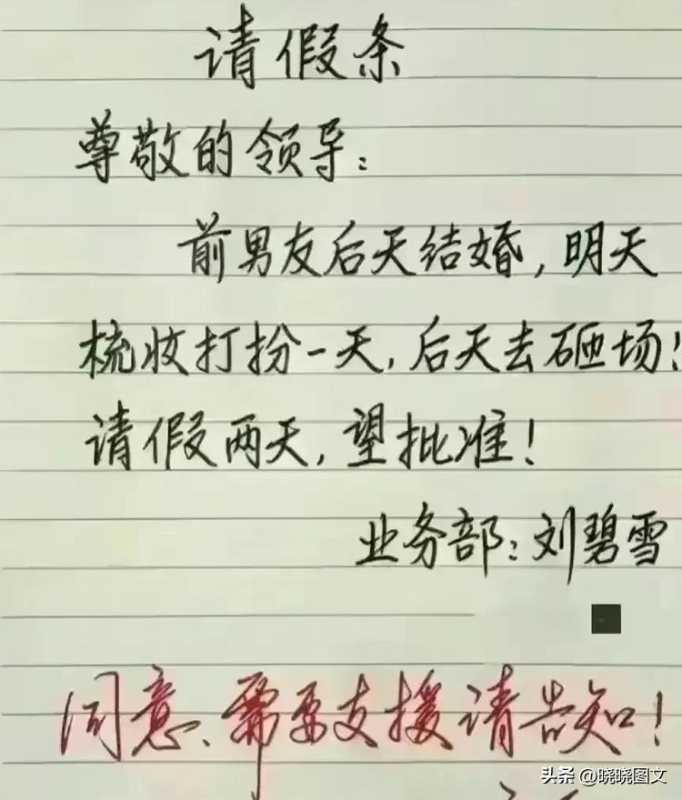 请假条
尊敬的领导：
前男友后天结婚，明天
梳妆打扮一天，后天去砸场！
请假两天，望批准！
业务部：刘碧雪
同意、需要支援请告知！
头条 @晓晓图文